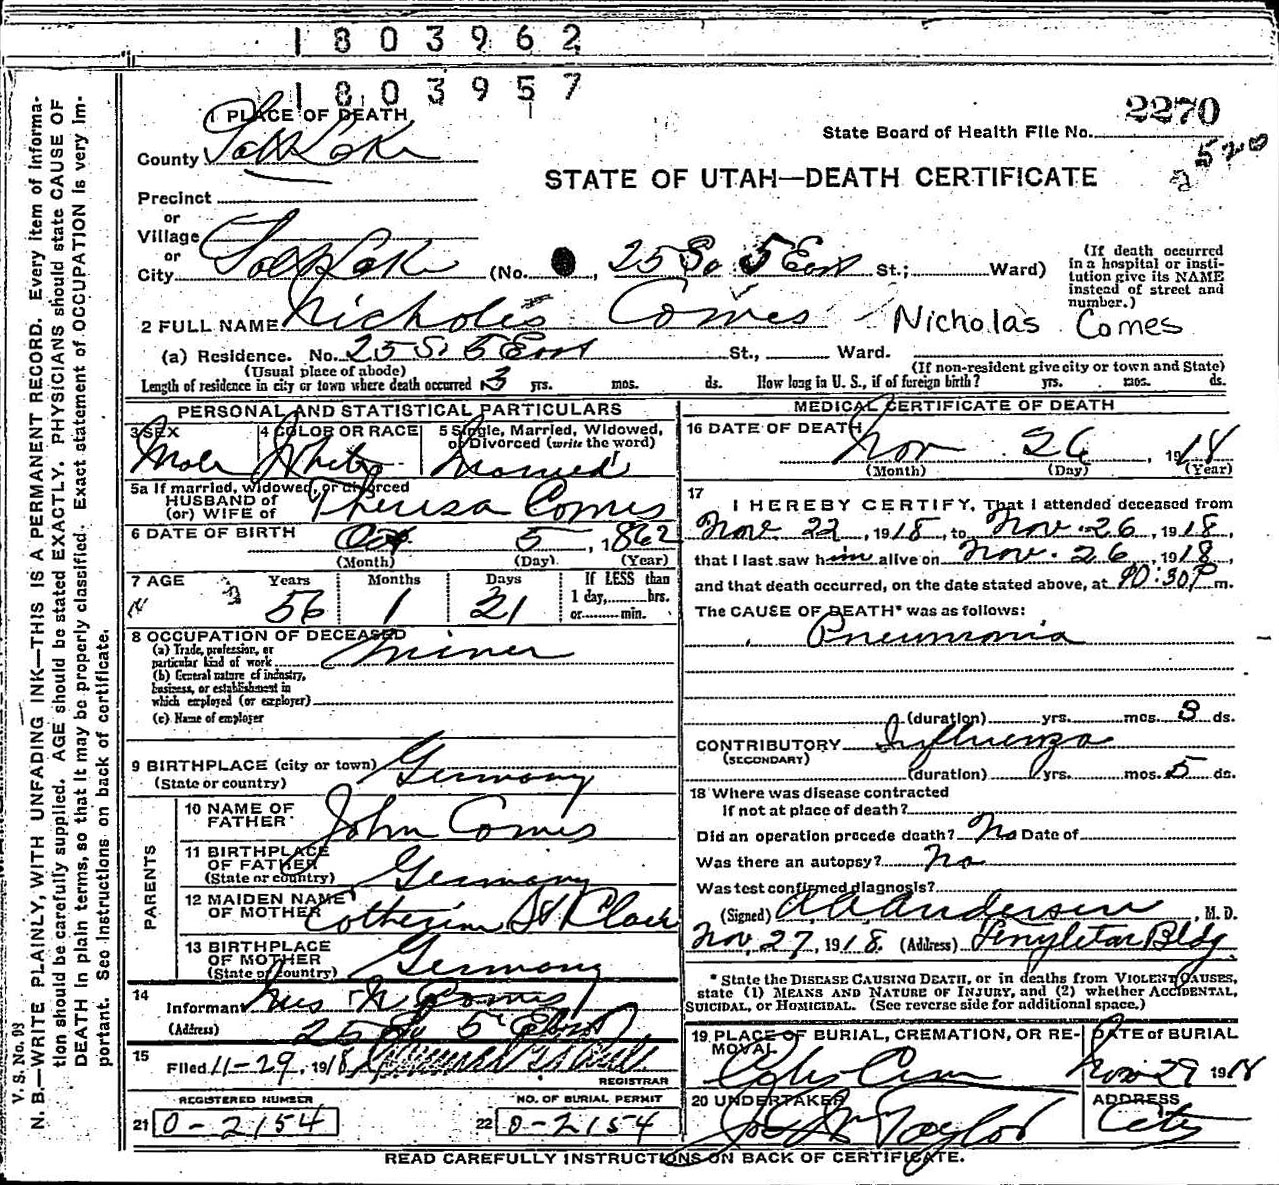 1803962
1803957
1 PLACE OF DEATH
2270
State Board of Health File No.
520
County Salt Lake
STATE OF UTAH—DEATH CERTIFICATE
Precinct
or
Village
or
City Salt Lake (No. , 25 So 5 East St.; Ward)
(If death occurred in a hospital or insti-
tution give its NAME
instead of street and
number.)
2 FULL NAME Nicholas Comes Nicholas Comes
(a) Residence. No. 25 So 5 East St., Ward.
(Usual place of abode) (If non-resident give city or town and State)
Length of residence in city or town where death occurred 3 yrs. mos. ds. How long in U. S., if of foreign birth? yrs. mos. ds.
PERSONAL AND STATISTICAL PARTICULARS
3 SEX 4 COLOR OR RACE 5 Single, Married, Widowed,
or Divorced (write the word)
Male White Married
5a If married, widowed, or divorced
HUSBAND of
(or) WIFE of Theresa Comes
6 DATE OF BIRTH Oct 5, 1862
(Month) (Day) (Year)
7 AGE Years Months Days If LESS than
1 day, hrs.
or min.
56 1 21
8 OCCUPATION OF DECEASED
(a) Trade, profession, or
particular kind of work Miner
(b) General nature of industry,
business, or establishment in
which employed (or employer)
(c) Name of employer
9 BIRTHPLACE (city or town) Germany
(State or country)
PARENTS
10 NAME OF
FATHER John Comes
11 BIRTHPLACE
OF FATHER Germany
(State or country)
12 MAIDEN NAME
OF MOTHER
13 BIRTHPLACE
OF MOTHER Germany
(State or country)
14
Informant Mrs N Comes
(Address) 25 So 5 East
15
Filed 11-29, 1918
REGISTRAR
REGISTERED NUMBER NO. OF BURIAL PERMIT
21 0-2154 22 0-2154
MEDICAL CERTIFICATE OF DEATH
16 DATE OF DEATH Nov 26, 1918
(Month) (Day) (Year)
17
I HEREBY CERTIFY, That I attended deceased from
Nov. 22, 1918, to Nov. 26, 1918,
that I last saw him alive on Nov. 26, 1918,
and that death occurred, on the date stated above, at 10:30 P m.
The CAUSE OF DEATH* was as follows:
Pneumonia
(duration) yrs. mos. 3 ds.
CONTRIBUTORY Influenza
(SECONDARY)
(duration) yrs. mos. 5 ds.
18 Where was disease contracted
if not at place of death?
Did an operation precede death? No Date of
Was there an autopsy? No
Was test confirmed diagnosis?
(Signed) A A Anderson, M. D.
Nov. 27, 1918. (Address) Bldg
* State the DISEASE CAUSING DEATH, or in deaths from VIOLENT CAUSES,
state (1) MEANS AND NATURE OF INJURY, and (2) whether ACCIDENTAL,
SUICIDAL, or HOMICIDAL. (See reverse side for additional space.)
19 PLACE OF BURIAL, CREMATION, OR RE-
MOVAL
DATE of BURIAL
Nov 29 1918
20 UNDERTAKER
Taylor
ADDRESS
City
READ CAREFULLY INSTRUCTIONS ON BACK OF CERTIFICATE.
V. S. No. 98
N. B.—WRITE PLAINLY, WITH UNFADING INK—THIS IS A PERMANENT RECORD. Every item of informa-
tion should be carefully supplied. AGE should be stated EXACTLY. PHYSICIANS should state CAUSE OF
DEATH in plain terms, so that it may be properly classified. Exact statement of OCCUPATION is very im-
portant. See instructions on back of certificate.